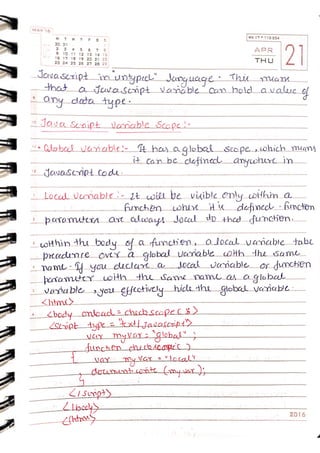 MAR'16
M T W T F S S
APR
THU
21
Javascript is "untyped" language. This means
that a Javascript variable can hold a value of
any data type.
Java Script Variable Scope:-
Global Variable:- It has a global scope, which means
it can be defined anywhere in
Javascript Code.
Local Variable:- It will be visible only within a
function where it is defined. function
parameters are always local to that function.
within the body of a function, a local variable take
precedence over a global variable with the same
name. If you declare a local variable or function
parameter with the same name as a global
variable, you effectively hide the global variable.
<html>
<body onload = checkscope()>
<script type = "text/javascript">
var myvar = "global" ;
function checkscope( )
{ var myvar = "local"
document.write (myvar);
}
</script>
</body>
</html>
2016